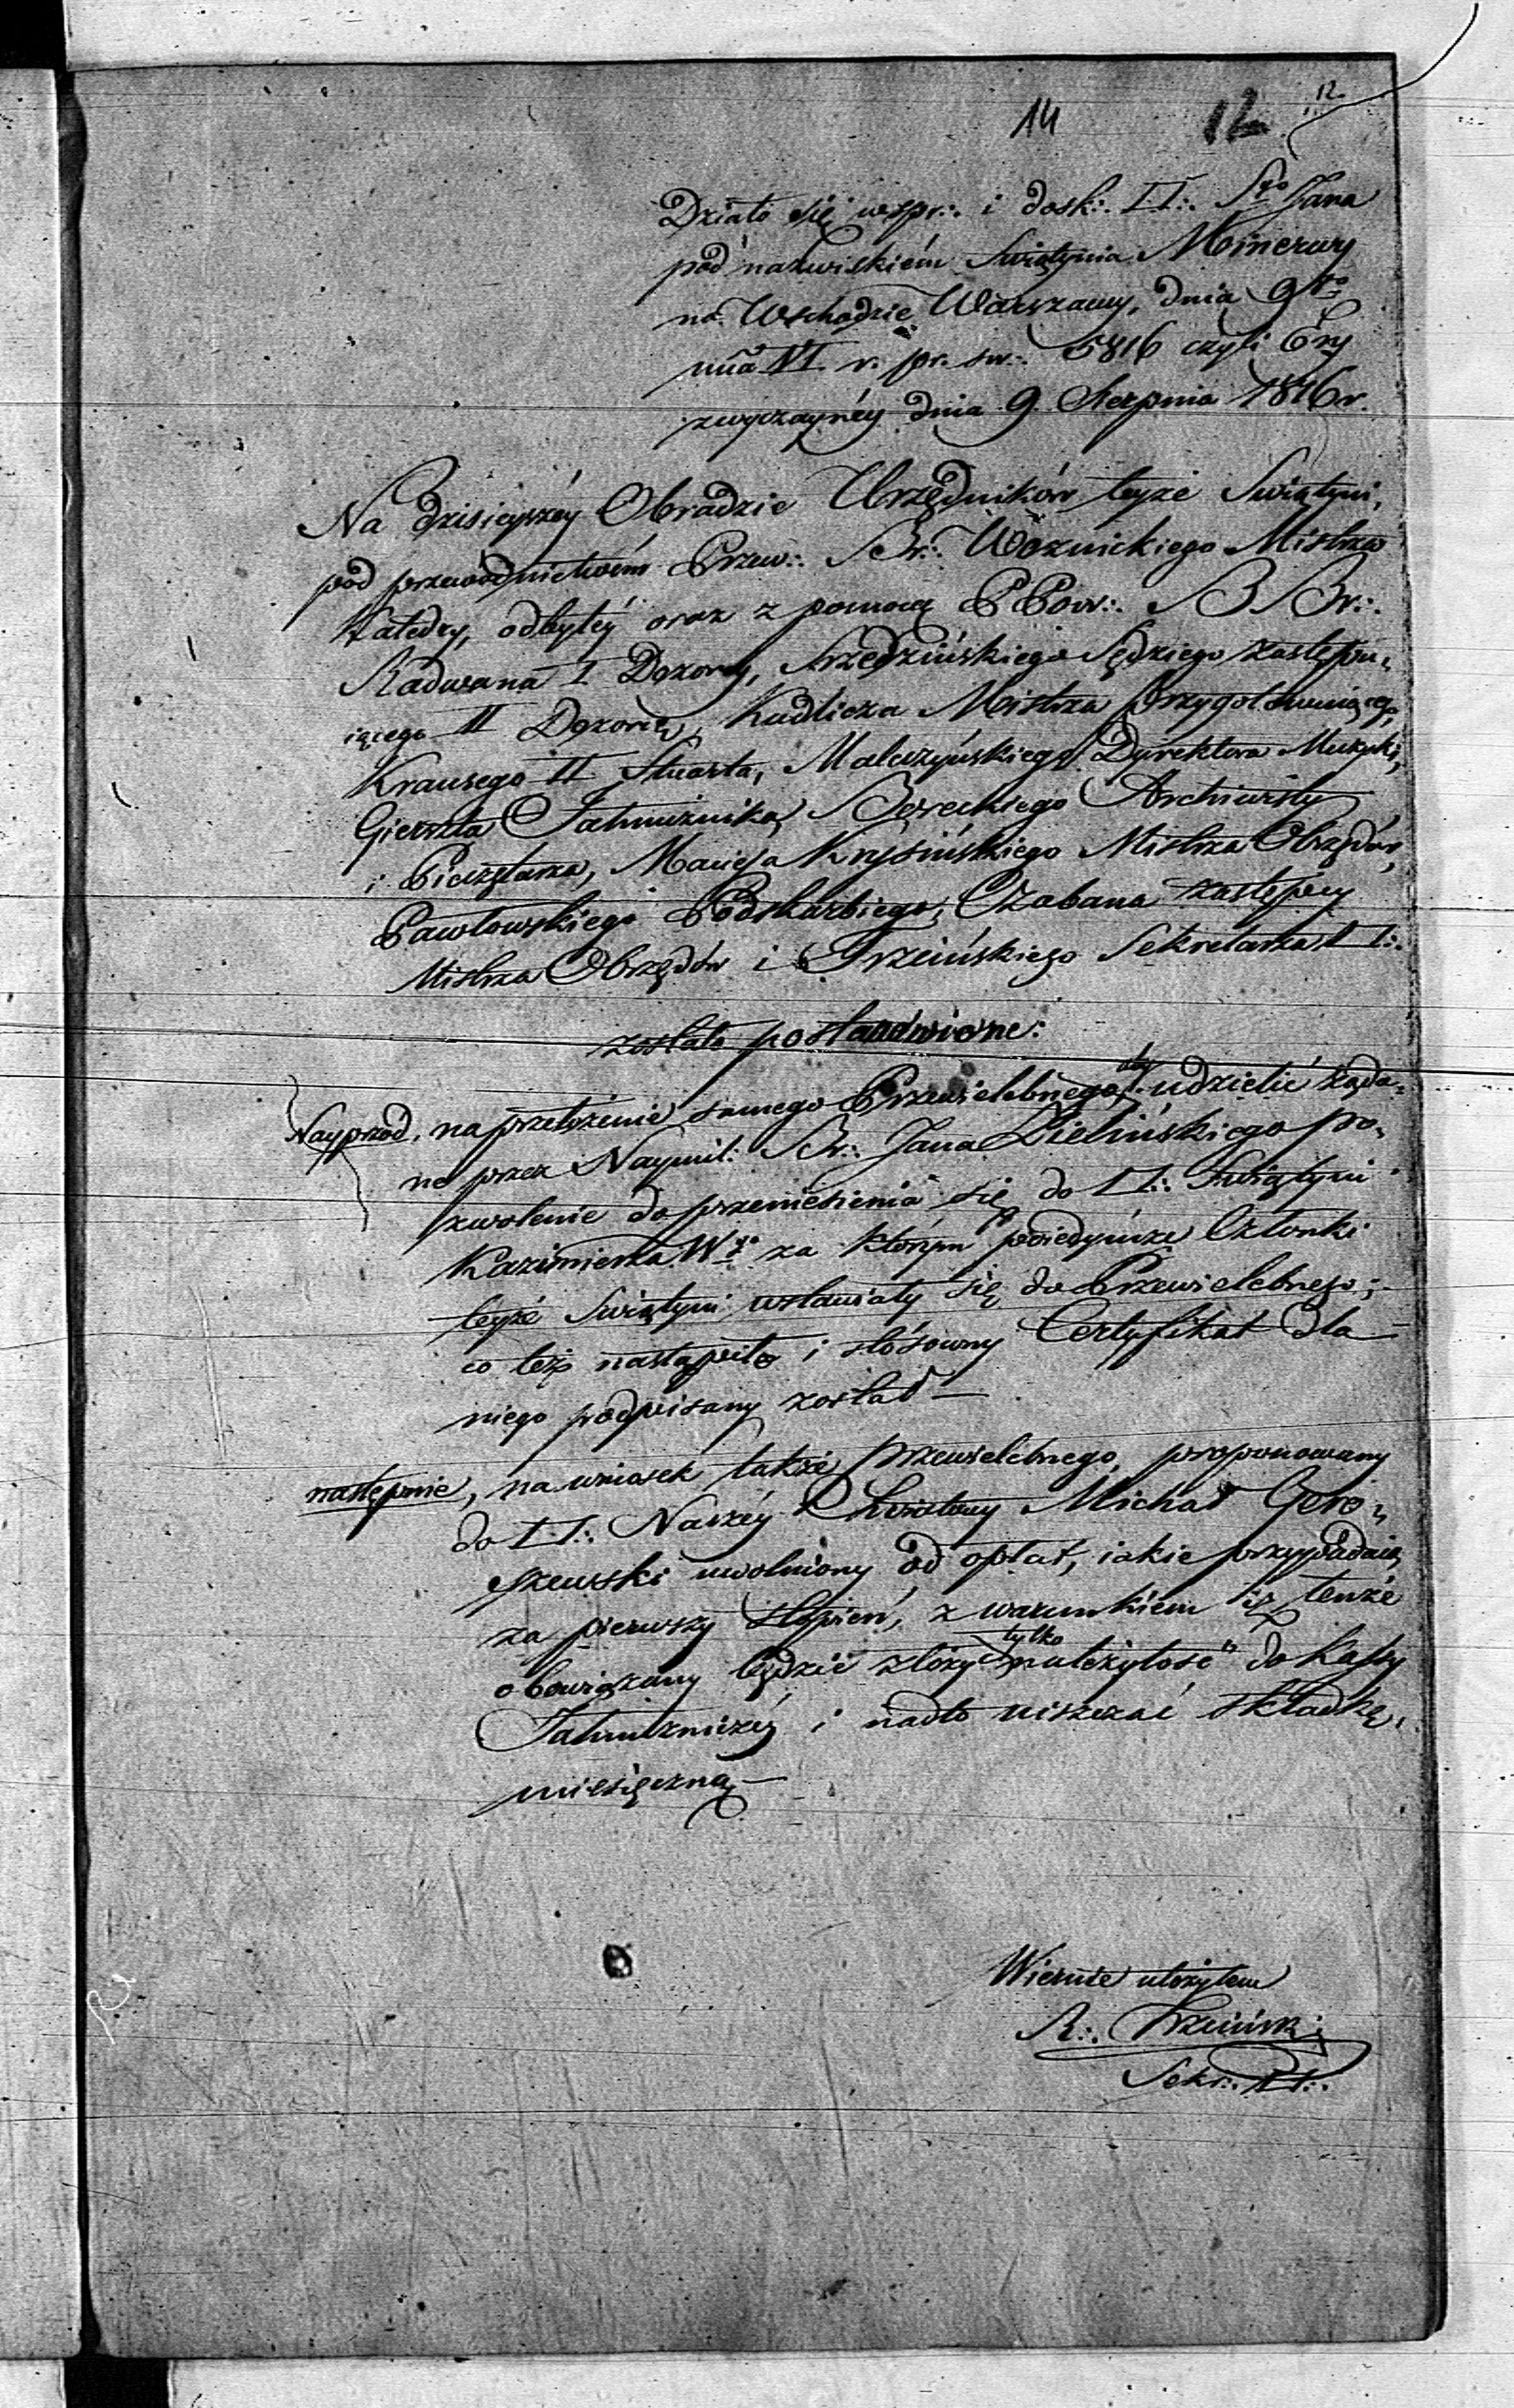 14 12 12
Działo się w spr∴ i dosk∴ □∴ Sgo Jana
pod nazwiskiém Swiątynia Minerwy
na Wschodzie Warszawy, dnia 9go
mca VI r. pr. sw∴ 5816 czyli Ery
zwyczaynéy dnia 9 Sierpnia 1816 r.
Na dzisieyszéy Obradzie Urzędników teyże Swiątyni,
pod przewodnictwém Przew∴ Br∴ Woznickiego Mistrza
Katedry, odbytéy oraz z pomocą PPow∴ BBr∴
Radwana I Dozorcy, Srzedzińskiego Sędziego zastępu-
iącego II Dozorcę, Kudlicza Mistrza Przygotowuiącego,
Krausego II Stuarta, Malczyńskiego Dyrektora Muzyki,
Gierszta Jałmużnika, Boreckiego Archiwisty
i Pieczętarza, Macieja Krysińskiego Mistrza Obrzędów,
Pawłowskiego Podskarbiego, Czabana zastępcy
Mistrza Obrzędów i Trzcińskiego Sekretarza □∴
zostało postanowione:
Nayprzód, na przełożenie samego Przewielebnego, aby udzielić żąda-
ne przez Naymil: Br∴ Jana Zielińskiego po-
zwolenie do przeniesienia się do □∴ Swiątyni
Kazimierza Wgo za którym poiedyńcze Członki
teyże Swiątyni wstawiały się do Przewielebnego;
co też nastąpiło i stósowny Certyfikat dla
niego podpisany został —
następnie, na wniosek także Przewielebnego, proponowany
do □∴ Naszéy Swiatowy Michał Goro-
szewski uwolniony od opłat, iakie przypadaią
za pierwszy stopień, z warunkiem iż tenże
obowiązany będzie złożyć tylko należytość do Kassy
Jałmużniczéy i nadto uiszczać składkę
miesięczną —
Wiernie ułożyłem
R∴ Trzciński
Sekr∴ □∴